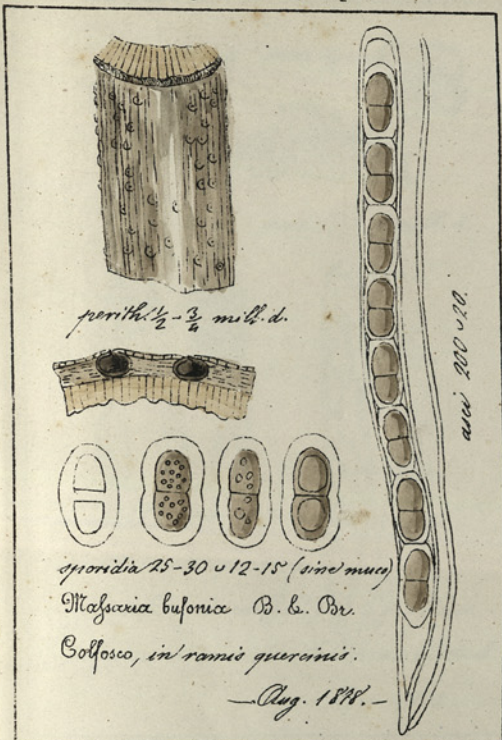 perith. ½ - ¾ mill. d.
asci 200 ᴗ 20.
sporidia 25-30 ᴗ 12-15 (sine muco)
Maſsaria bufonia B. & Br.
Colfosco, in ramis quercinis.
— Aug. 1878. —